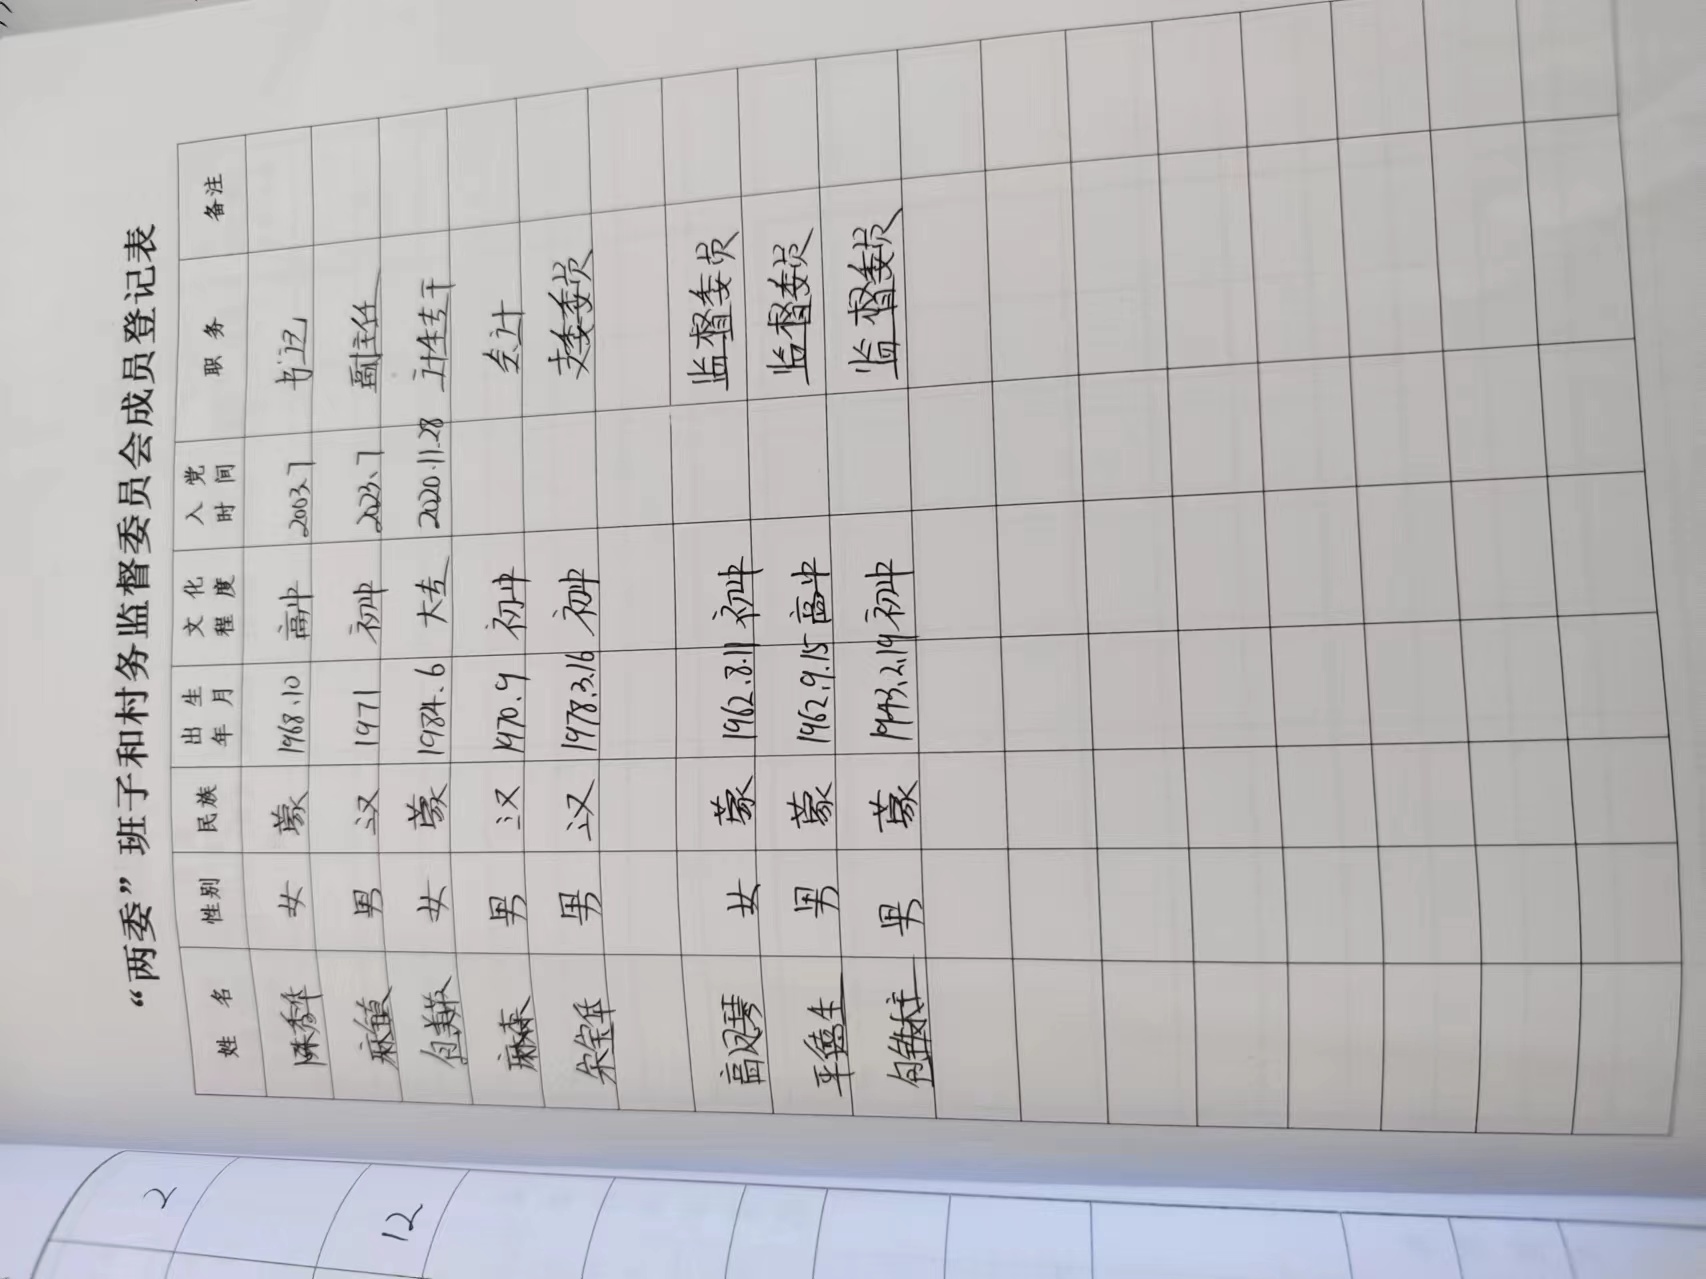 “两委”班子和村务监督委员会成员登记表
姓 名 性别 民族 出生年月 文化程度 入党时间 职务 备注
陈秀华 女 蒙 1968.10 高中 2003.7 书记
男 汉 1971 初中 2023.7 副主任
包美 女 蒙 1984.6 大专 2020.11.28 计生专干
麻森 男 汉 1970.9 初中 会计
宋宝华 男 汉 1978.3.16 初中 支委委员
高凤琴 女 蒙 1962.8.11 初中 监督委员
男 蒙 1962.9.15 高中 监督委员
包 柱 男 蒙 初中 监督委员
2
12